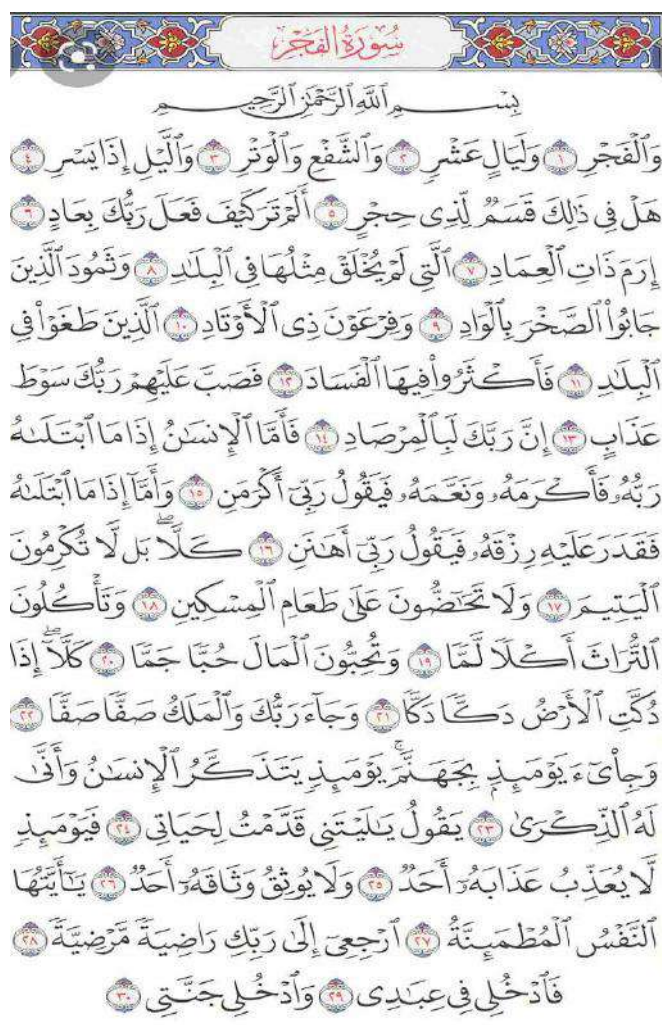 سُورَةُ الفَجۡرِ
بِسۡمِ ٱللَّهِ ٱلرَّحۡمَٰنِ ٱلرَّحِيمِ
وَٱلۡفَجۡرِ ١ وَلَيَالٍ عَشۡرٖ ٢ وَٱلشَّفۡعِ وَٱلۡوَتۡرِ ٣ وَٱلَّيۡلِ إِذَا يَسۡرِ ٤
هَلۡ فِي ذَٰلِكَ قَسَمٞ لِّذِي حِجۡرٍ ٥ أَلَمۡ تَرَ كَيۡفَ فَعَلَ رَبُّكَ بِعَادٍ ٦
إِرَمَ ذَاتِ ٱلۡعِمَادِ ٧ ٱلَّتِي لَمۡ يُخۡلَقۡ مِثۡلُهَا فِي ٱلۡبِلَٰدِ ٨ وَثَمُودَ ٱلَّذِينَ
جَابُواْ ٱلصَّخۡرَ بِٱلۡوَادِ ٩ وَفِرۡعَوۡنَ ذِي ٱلۡأَوۡتَادِ ١٠ ٱلَّذِينَ طَغَوۡاْ فِي
ٱلۡبِلَٰدِ ١١ فَأَكۡثَرُواْ فِيهَا ٱلۡفَسَادَ ١٢ فَصَبَّ عَلَيۡهِمۡ رَبُّكَ سَوۡطَ
عَذَابٍ ١٣ إِنَّ رَبَّكَ لَبِٱلۡمِرۡصَادِ ١٤ فَأَمَّا ٱلۡإِنسَٰنُ إِذَا مَا ٱبۡتَلَىٰهُ
رَبُّهُۥ فَأَكۡرَمَهُۥ وَنَعَّمَهُۥ فَيَقُولُ رَبِّيٓ أَكۡرَمَنِ ١٥ وَأَمَّآ إِذَا مَا ٱبۡتَلَىٰهُ
فَقَدَرَ عَلَيۡهِ رِزۡقَهُۥ فَيَقُولُ رَبِّيٓ أَهَٰنَنِ ١٦ كَلَّاۖ بَل لَّا تُكۡرِمُونَ
ٱلۡيَتِيمَ ١٧ وَلَا تَحَٰٓضُّونَ عَلَىٰ طَعَامِ ٱلۡمِسۡكِينِ ١٨ وَتَأۡكُلُونَ
ٱلتُّرَاثَ أَكۡلٗا لَّمّٗا ١٩ وَتُحِبُّونَ ٱلۡمَالَ حُبّٗا جَمّٗا ٢٠ كَلَّآۖ إِذَا
دُكَّتِ ٱلۡأَرۡضُ دَكّٗا دَكّٗا ٢١ وَجَآءَ رَبُّكَ وَٱلۡمَلَكُ صَفّٗا صَفّٗا ٢٢
وَجِاْيٓءَ يَوۡمَئِذِۭ بِجَهَنَّمَۚ يَوۡمَئِذٖ يَتَذَكَّرُ ٱلۡإِنسَٰنُ وَأَنَّىٰ
لَهُ ٱلذِّكۡرَىٰ ٢٣ يَقُولُ يَٰلَيۡتَنِي قَدَّمۡتُ لِحَيَاتِي ٢٤ فَيَوۡمَئِذٖ
لَّا يُعَذِّبُ عَذَابَهُۥٓ أَحَدٞ ٢٥ وَلَا يُوثِقُ وَثَاقَهُۥٓ أَحَدٞ ٢٦ يَٰٓأَيَّتُهَا
ٱلنَّفۡسُ ٱلۡمُطۡمَئِنَّةُ ٢٧ ٱرۡجِعِيٓ إِلَىٰ رَبِّكِ رَاضِيَةٗ مَّرۡضِيَّةٗ ٢٨
فَٱدۡخُلِي فِي عِبَٰدِي ٢٩ وَٱدۡخُلِي جَنَّتِي ٣٠